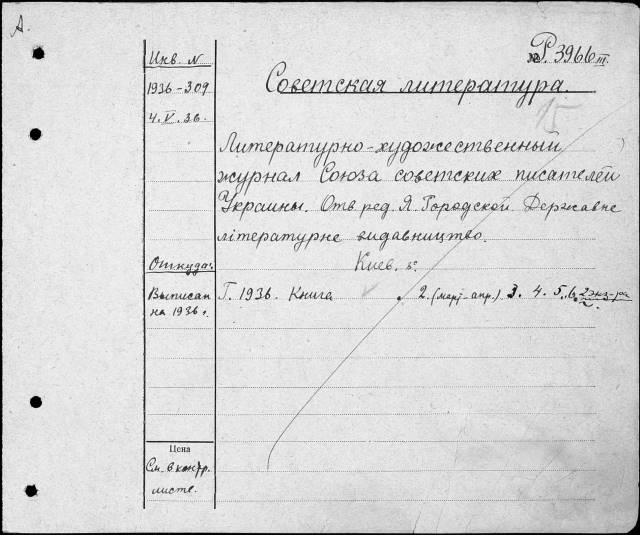 А.
№ Р. 3966 III.
Инв. N
1936-309
4.V.36.
Советская литература.
15
Литературно-художественный
журнал Союза советских писателей
Украины. Отв. ред. Я. Городской. Державне
літературне видавництво.
Киев.
Откуда:
Выписан
на 1936 г.
Г. 1936. Книга 2. (март-апр.) 3. 4. 5. 6.
Цена
См. в контр.
листе.